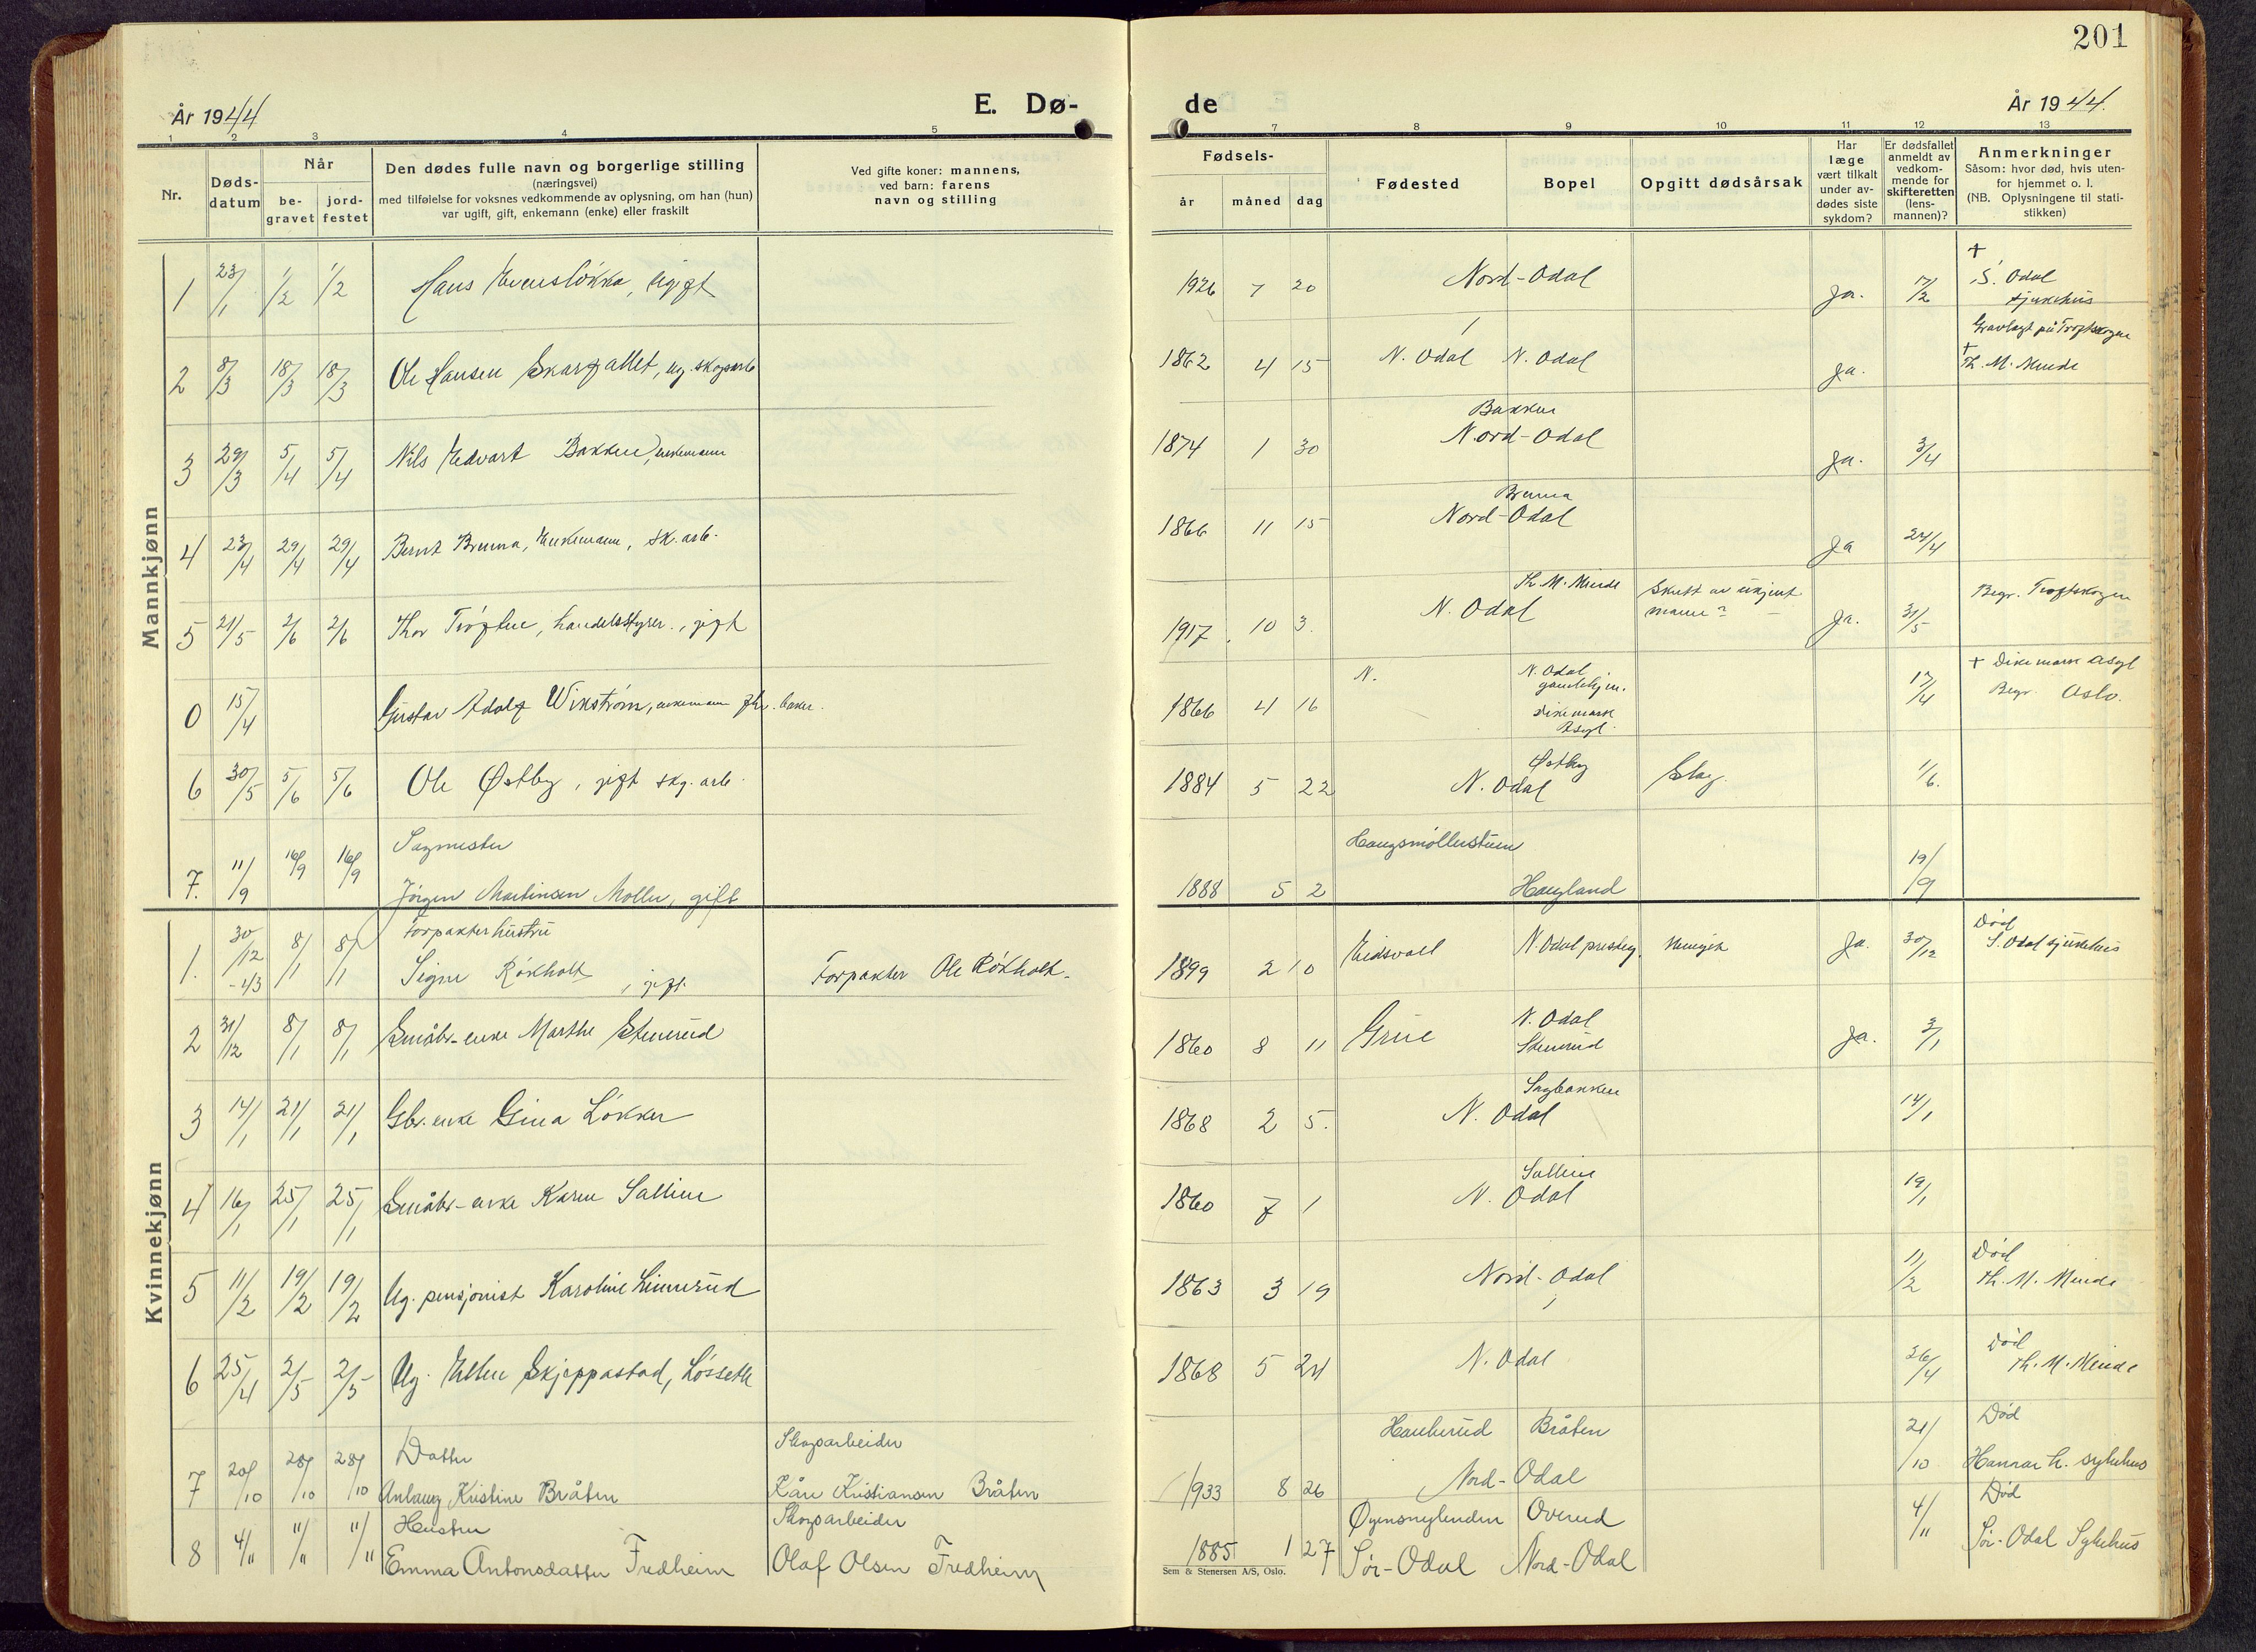 201
År 1944
E. Dø-
de
År 1944.
1 2 3 4 5 7 8 9 10 11 12 13
Nr.
Døds-
datum
Når
be-
gravet
jord-
festet
Den dødes fulle navn og borgerlige stilling
(næringsvei)
med tilføielse for voksnes vedkommende av oplysning, om han (hun)
var ugift, gift, enkemann (enke) eller fraskilt
Ved gifte koner: mannens,
ved barn: farens
navn og stilling
Fødsels-
år måned dag
Fødested
Bopel
Opgitt dødsårsak
Har
læge
vært tilkalt
under av-
dødes siste
sykdom?
Er dødsfallet
anmeldt av
vedkom-
mende for
skifteretten
(lens-
mannen)?
Anmerkninger
Såsom: hvor død, hvis uten-
for hjemmet o. l.
(NB. Oplysningene til stati-
stikken)
Mannkjønn
1 23/1 1/2 1/2 Hans Evensløkka, ugift 1926 7 20 Nord-Odal Ja. 17/2 + S. Odal
sjukehus
Gravlagt på Trøftskogen
2 8/3 18/3 18/3 Ole Hansen Skarpallet, ug. skogsarb 1862 4 15 N. Odal N. Odal Ja. + Th. M. Minde
Bakken
3 29/3 5/4 5/4 Nils Edvart Bakken, enkemann 1874 1 30 Nord-Odal Ja. 3/4
Bruna
4 23/4 29/4 29/4 Bernt Bruna, Enkemann, sk. arb. 1866 11 15 Nord-Odal Ja 24/4
Th. M. Minde Skutt av ukjent Begr. Trøftskogen
5 21/5 2/6 2/6 Thor Trøften, handelsstyrer., gift 1917. 10 3. N. Odal mann? Ja. 31/5
N. N. Odal + Dikemark Asyl
gamlehjem. Begr. Oslo.
0 15/4 Gustav Adolf Wikstrøm, enkemann fhv. baker. 1866 4 16 Dikemark 17/4
Asyl.
Østby
6 30/5 5/6 5/6 Ole Østby, gift skg. arb. 1884 5 22 N. Odal Slag. 1/6.
Sagmester Haugsmøllerstuen
7. 11/9 16/9 16/9 Jørgen Martinsen Moller, gift 1888 5 2 Haugland 19/9
Kvinnekjønn
Forpakterhustru Død
1. 30/12 -43 8/1 8/1 Signe Røkholt, gift. Forpakter Ole Røkholt. 1899 2 10 Eidsvoll N. Odal presteg. Ja. 30/12 S. Odal sjukehus
N. Odal
2 31/12 8/1 8/1 Småbr-enke Marthe Stenerud 1860 8 11 Grue Stenerud Ja. 3/1
Sagbakken
3 14/1 21/1 21/1 Gbr. enke Gina Løkker 1868 2 5. N. Odal 14/1
Sallien
4 16/1 25/1 25/1 Småbr-enke Karen Sallien 1860 7 1 N. Odal 19/1
Død
5 11/2 19/2 19/2 Ug. pensjonist Karoline Linnerud 1863 3 19 Nord-Odal 11/2 Th. M. Minde
Død
6 25/4 2/5 2/5 Ug. Ellen Skjeppastad, Løsseth 1868 5 24 N. Odal 26/4 Th. M. Minde
Datter Skogsarbeider Haukerud Bråten Død
7 20/10 28/10 28/10 Anlaug Kristine Bråten Kåre Kristiansen Bråten 1933 8 26 Nord-Odal 21/10 Hamar h. sykehus
Hustru Skogsarbeider Overud Død
8 4/11 11/11 11/11 Emma Antonsdatter Fredheim Olaf Olsen Fredheim 1885 1 27 Sør-Odal Nord-Odal 4/11 Sør-Odal Sykehus
Sem & Stenersen A/S, Oslo.